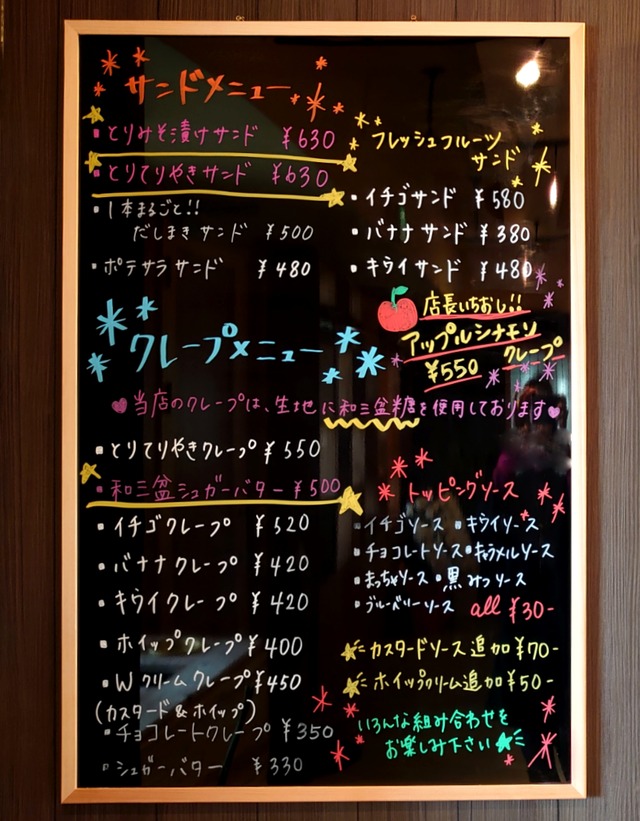 サンドメニュー
・とりみそ漬けサンド ¥630
・とりてりやきサンド ¥630
・1本まるごと!!
だしまきサンド ¥500
・ポテサラサンド ¥480
フレッシュフルーツ
サンド
・イチゴサンド ¥580
・バナナサンド ¥380
・キウイサンド ¥480
店長いちおし!!
アップルシナモン
クレープ
¥550
クレープメニュー
当店のクレープは、生地に和三盆糖を使用しております
・とりてりやきクレープ ¥550
・和三盆シュガーバター ¥500
・イチゴクレープ ¥520
・バナナクレープ ¥420
・キウイクレープ ¥420
・ホイップクレープ ¥400
・Wクリームクレープ ¥450
(カスタード&ホイップ)
・チョコレートクレープ ¥350
・シュガーバター ¥330
トッピングソース
・イチゴソース ・キウイソース
・チョコレートソース・キャラメルソース
・まっちゃソース ・黒みつソース
・ブルーベリーソース all ¥30-
カスタードソース追加 ¥70-
ホイップクリーム追加 ¥50-
いろんな組み合わせを
お楽しみ下さい